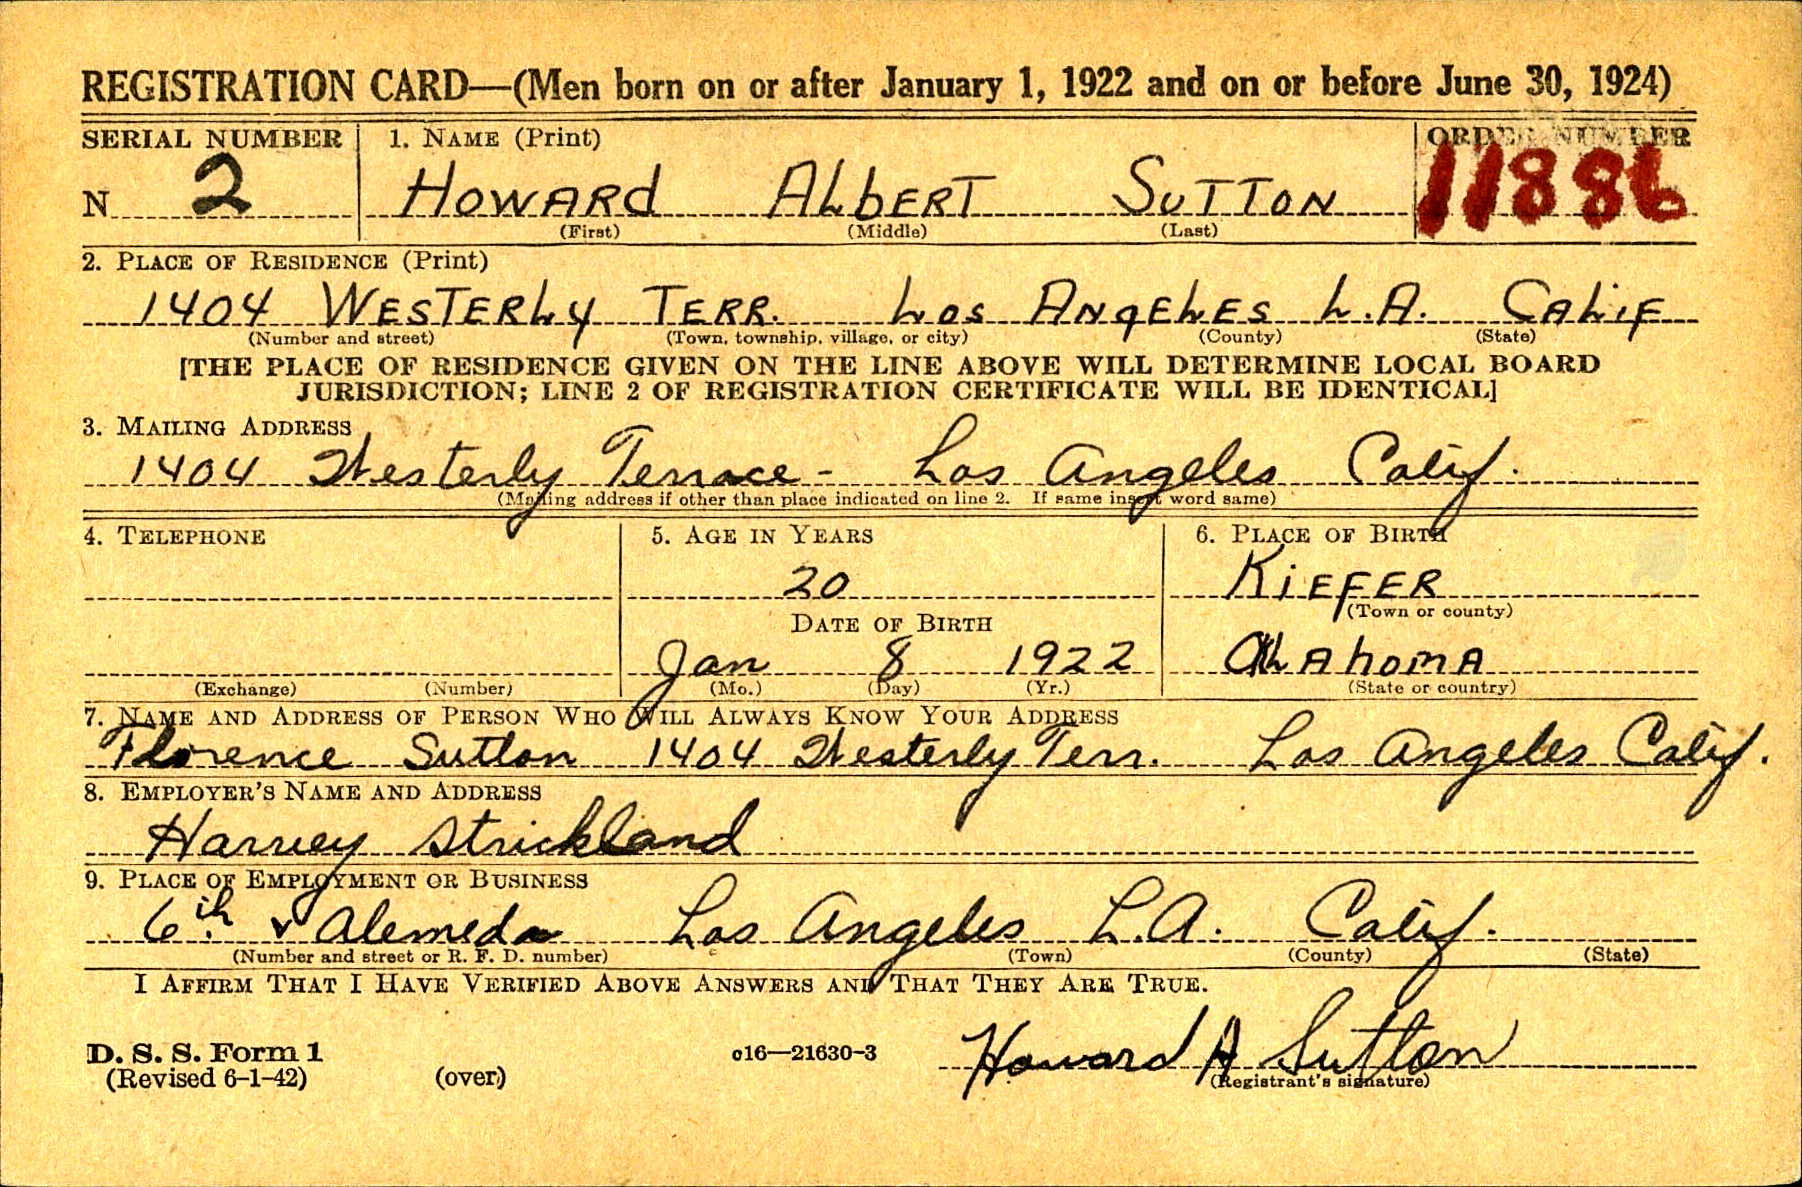 REGISTRATION CARD—(Men born on or after January 1, 1922 and on or before June 30, 1924)
SERIAL NUMBER 1. NAME (Print) ORDER NUMBER
N 2 HOWARD ALBERT SUTTON 11886
(First) (Middle) (Last)
2. PLACE OF RESIDENCE (Print)
1404 WESTERLY TERR. LOS ANGELES L.A. CALIF
(Number and street) (Town, township, village, or city) (County) (State)
[THE PLACE OF RESIDENCE GIVEN ON THE LINE ABOVE WILL DETERMINE LOCAL BOARD
JURISDICTION; LINE 2 OF REGISTRATION CERTIFICATE WILL BE IDENTICAL]
3. MAILING ADDRESS
1404 Westerly Terrace - Los Angeles Calif.
(Mailing address if other than place indicated on line 2. If same insert word same)
4. TELEPHONE 5. AGE IN YEARS 6. PLACE OF BIRTH
20 KIEFER
(Town or county)
DATE OF BIRTH
Jan 8 1922 OKLAHOMA
(Exchange) (Number) (Mo.) (Day) (Yr.) (State or country)
7. NAME AND ADDRESS OF PERSON WHO WILL ALWAYS KNOW YOUR ADDRESS
Florence Sutton 1404 Westerly Terr. Los Angeles Calif.
8. EMPLOYER'S NAME AND ADDRESS
Harvey Strickland
9. PLACE OF EMPLOYMENT OR BUSINESS
6th & Alemeda Los Angeles L.A. Calif.
(Number and street or R. F. D. number) (Town) (County) (State)
I AFFIRM THAT I HAVE VERIFIED ABOVE ANSWERS AND THAT THEY ARE TRUE.
D. S. S. Form 1 16—21630-3 Howard A Sutton
(Revised 6-1-42) (over) (Registrant's signature)